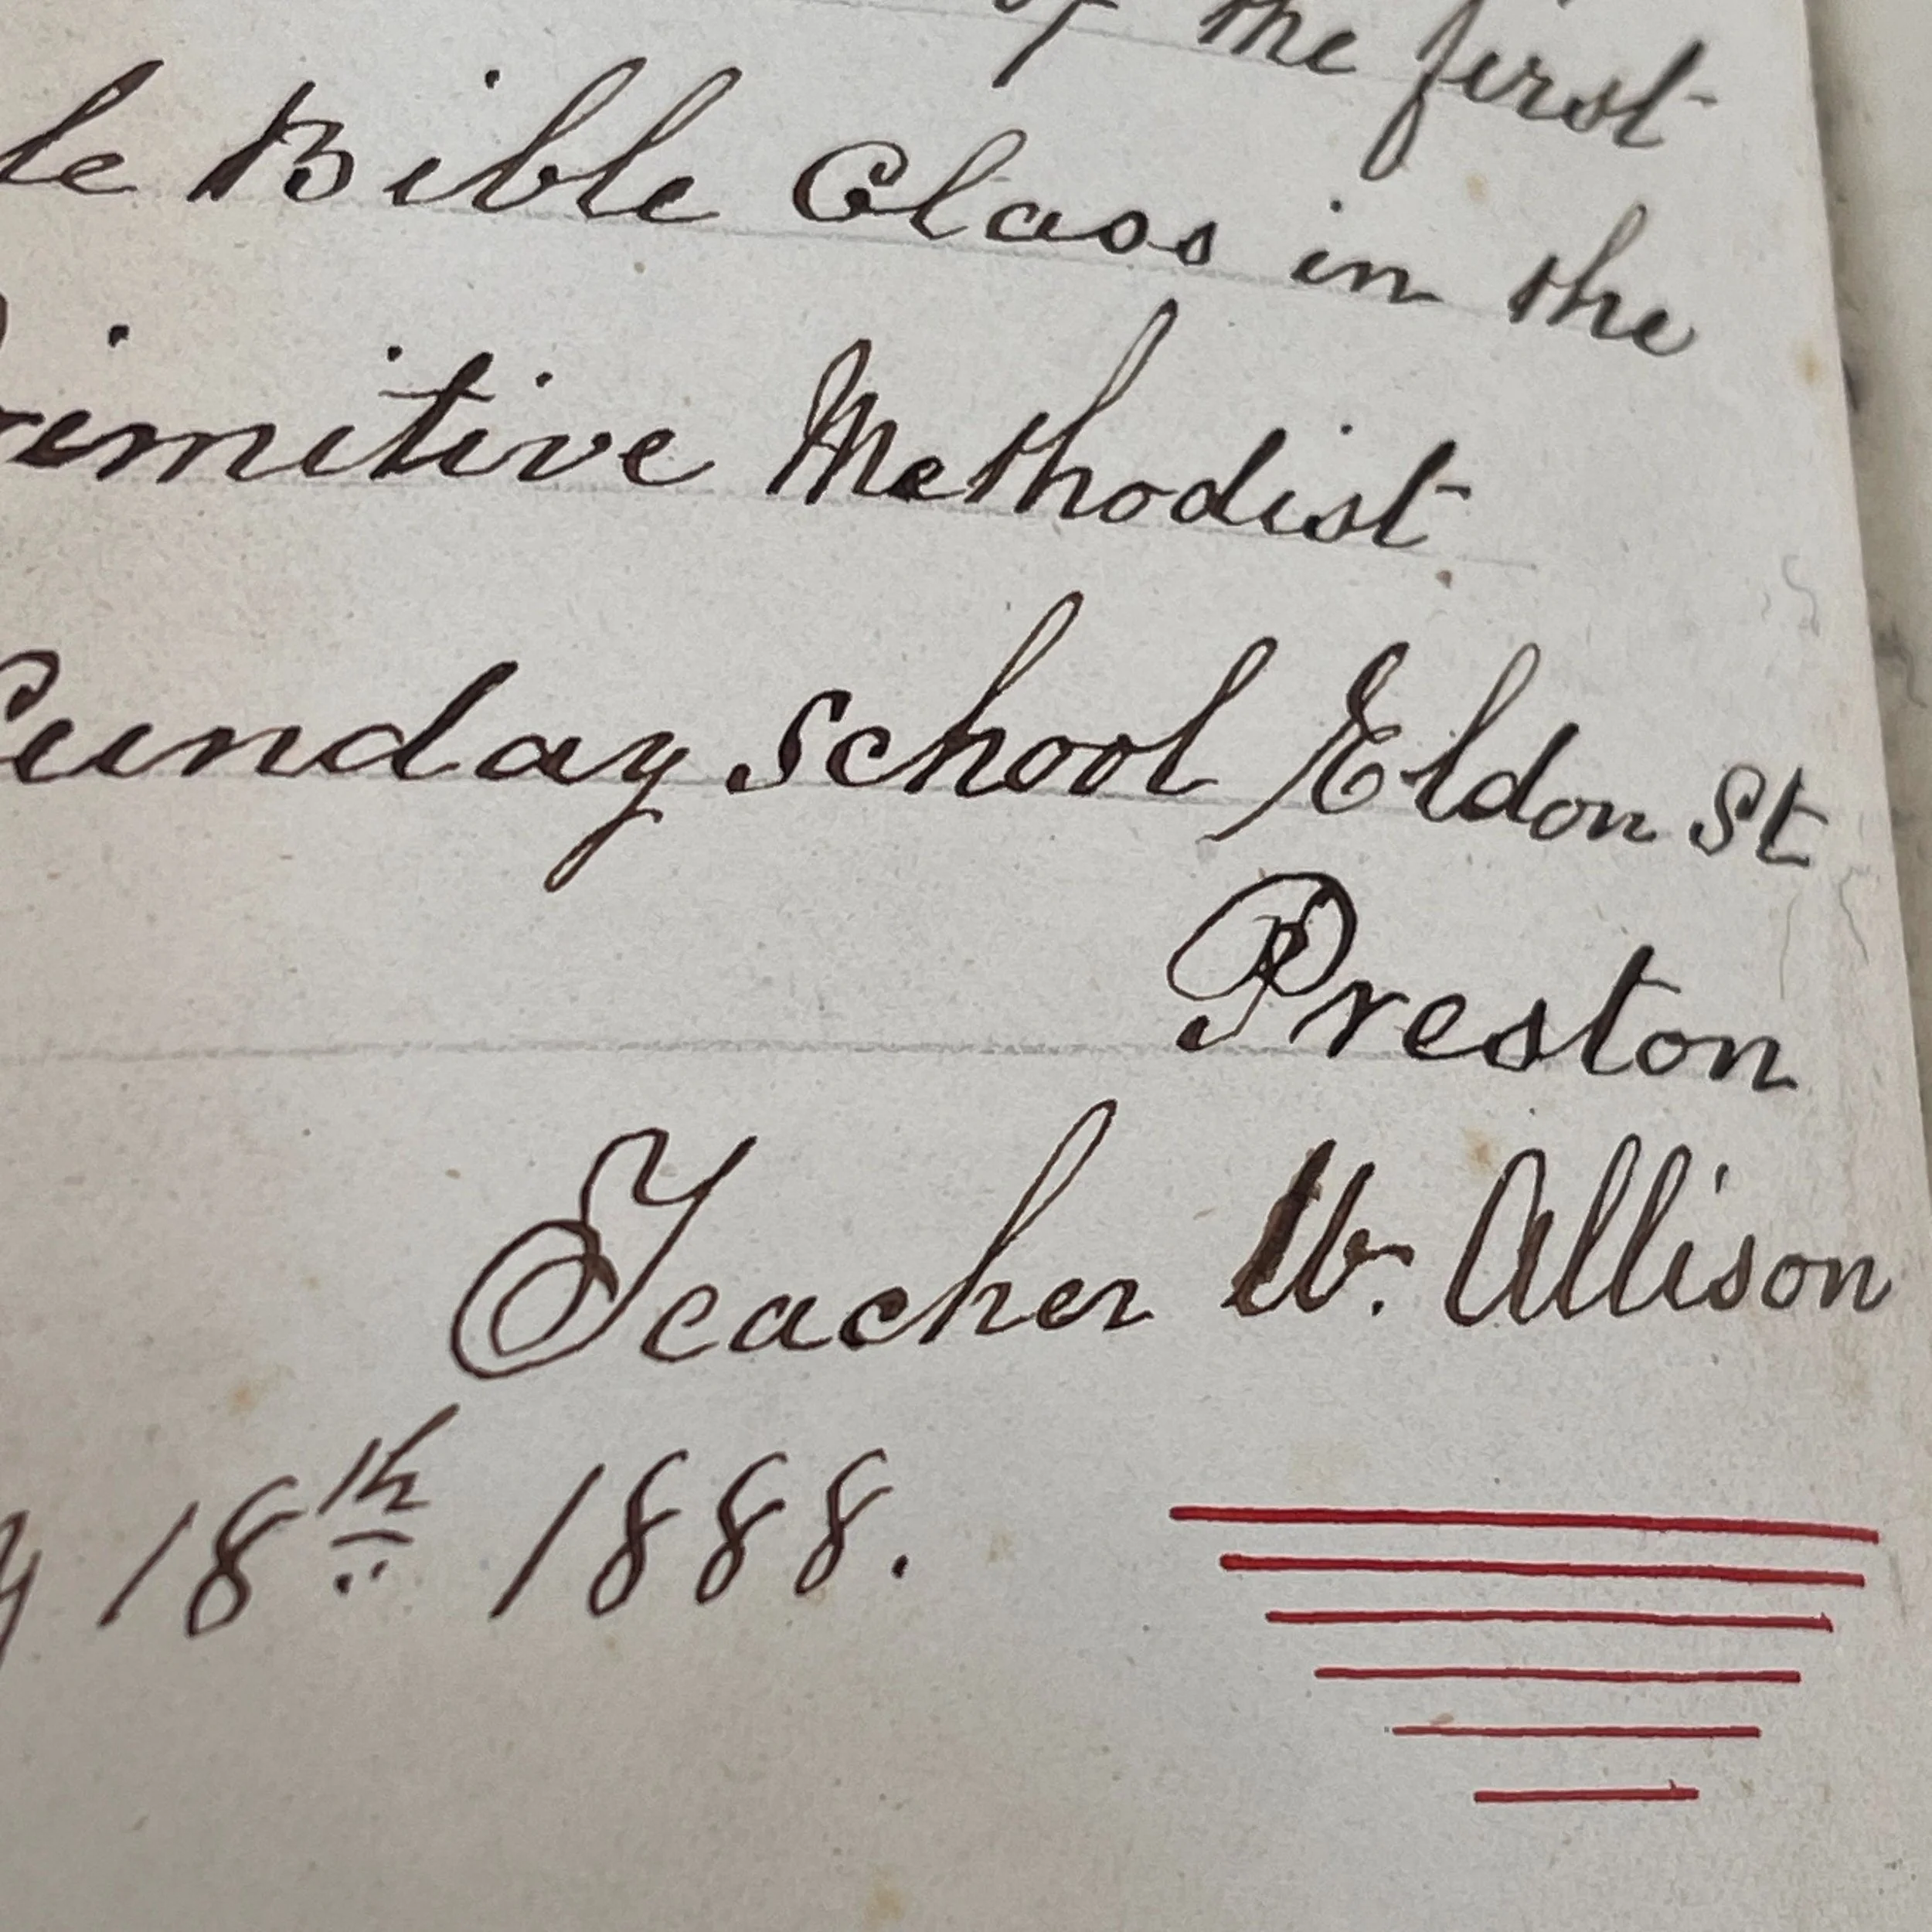 of the first
le Bible Class in the
rimitive Methodist
Sunday School Eldon St
Preston
Teacher W. Allison
y 18th 1888.